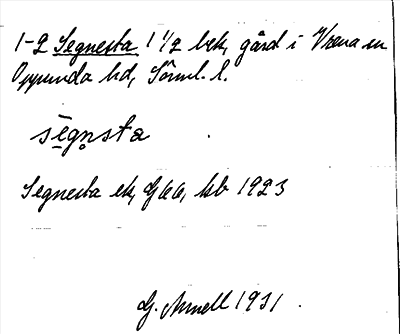 1-2 Segnesta 1 1/2 bek, gård i Vrena sn
Oppunda hd, Sörml. l.
sḙgn̥sta
Segnesta ek, G66, kb 1923
G. Arnell 1931.